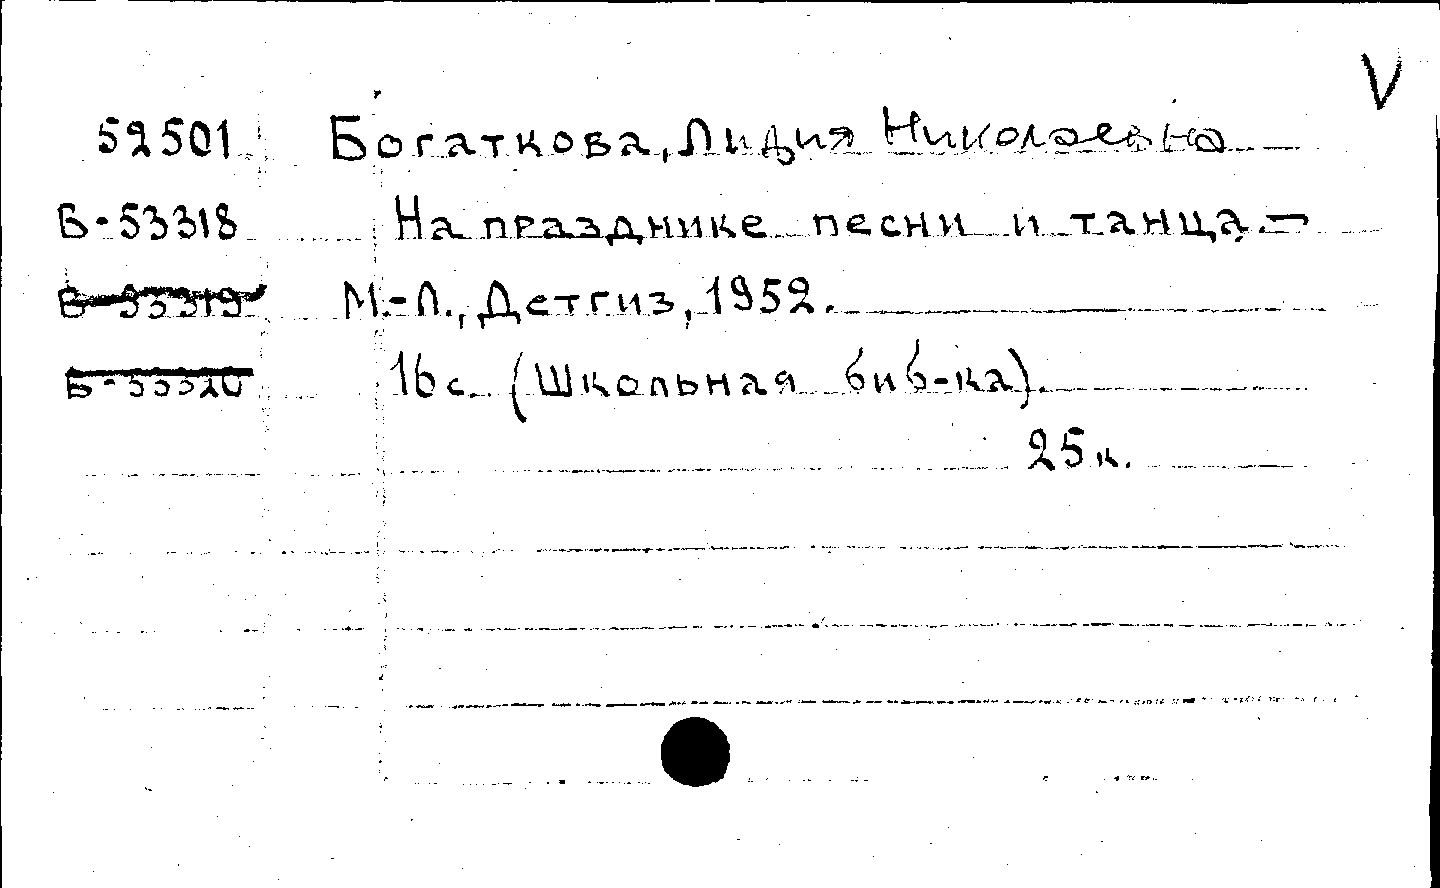 V
52501 Богаткова, Лидия Николаевна
Б-53318 На празднике песни и танца.—
Б-53319 М.-Л., Детгиз, 1952.
Б-53320 16 с. (Школьная биб-ка).
25 к.